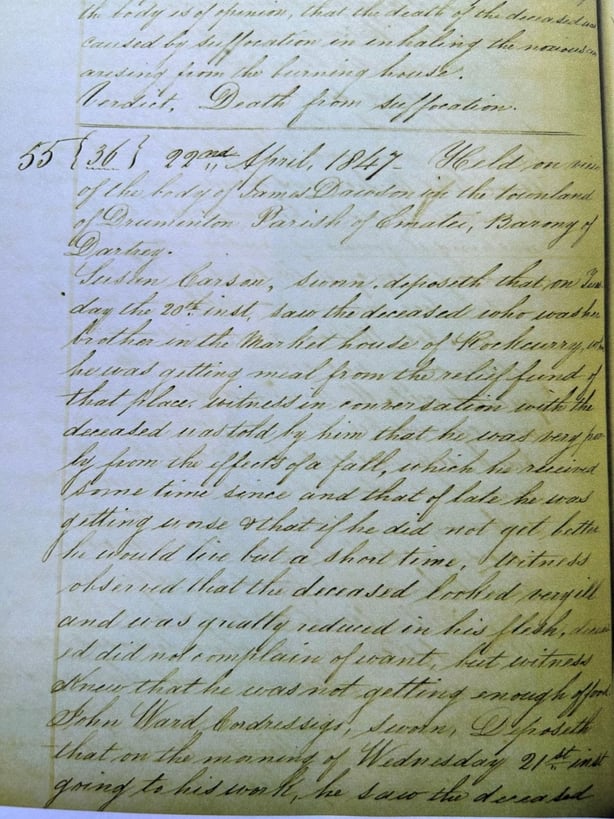 the body is of opinion, that the death of the deceased was
caused by suffocation in inhaling the noxious
arising from the burning house.
Verdict. Death from suffocation.
55 {36} 22nd April, 1847 - Held on view
of the body of James Dawson in the townland
of Druminton Parish of Ematee, Barony of
Dartrey.
Susan Carson, sworn, deposeth that on Tues-
day the 20th inst, saw the deceased who was her
brother in the Market house of Rockcurry,
he was getting meal from the relief fund of
that place. witness in conversation with the
deceased was told by him that he was very poor
ly from the effects of a fall, which he received
some time since and that of late he was
getting worse & that if he did not get better
he would live but a short time, Witness
observed that the deceased looked very ill
and was greatly reduced in his flesh, deceas
ed did not complain of want, but witness
knew that he was not getting enough of food
John Ward, sworn, Deposeth
that on the morning of Wednesday 21st inst
going to his work, he saw the deceased